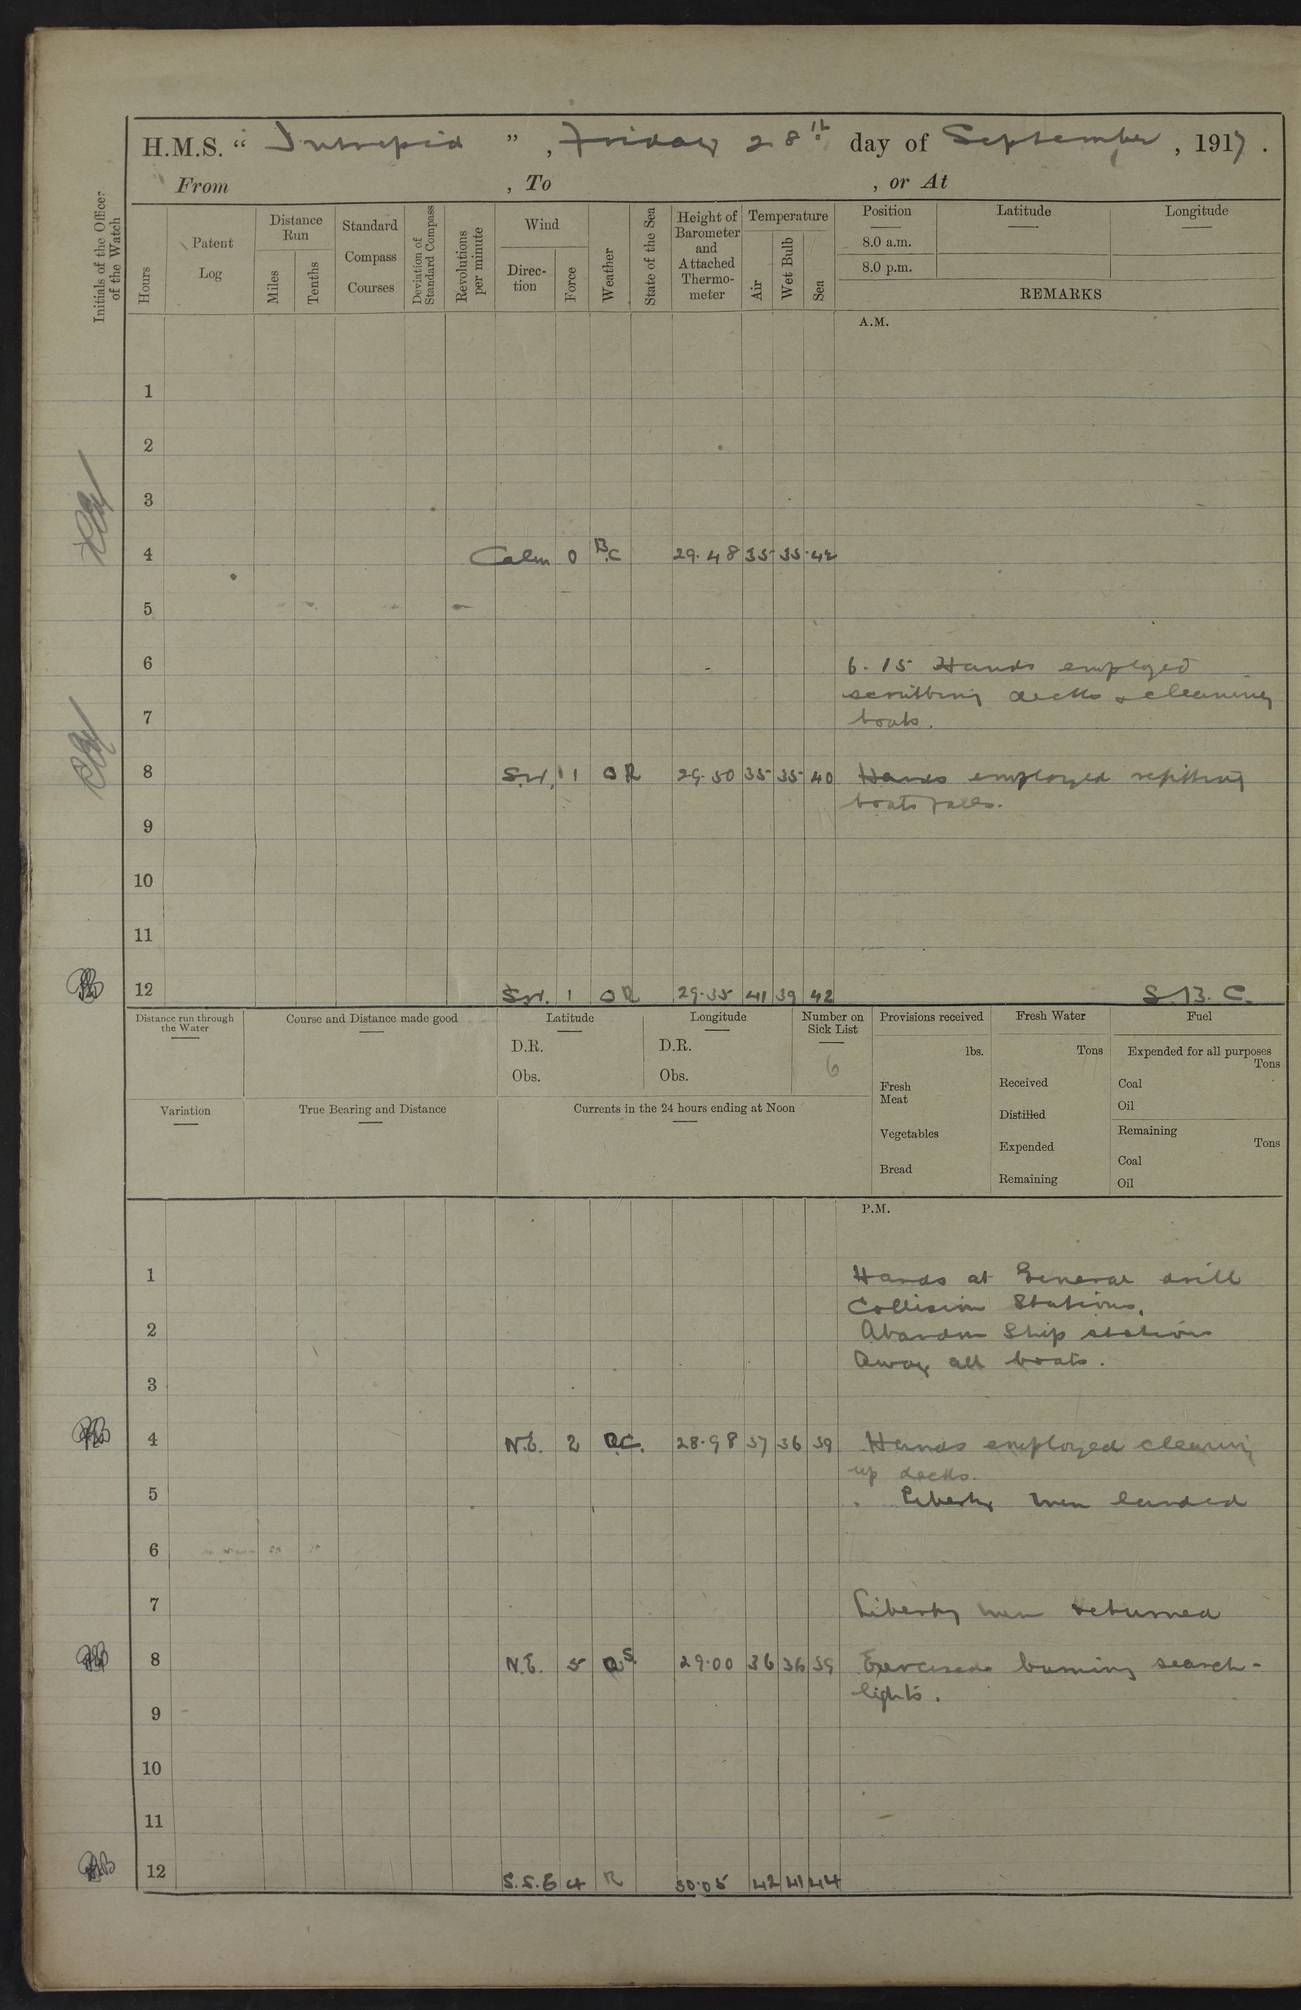 H.M.S. “ Intrepid ” , Friday 28th day of September , 1917 .
From , To , or At
Initials of the Officer of the Watch
Hours
Patent Log
Distance Run
Miles
Tenths
Standard Compass Courses
Deviation of Standard Compass
Revolutions per minute
Wind
Direc-tion
Force
Weather
State of the Sea
Height of Barometer and Attached Thermo-meter
Temperature
Air
Wet Bulb
Sea
Position Latitude Longitude
8.0 a.m.
8.0 p.m.
REMARKS
A.M.
1
2
3
4 Calm 0 B.C 29.48 35 35 42
5
6 6.15 Hands employed
scrubbing decks & cleaning
7 boats.
8 SW. 1 O R 29.50 35 35 40 Hands employed refitting
boats falls.
9
10
11
12 SW. 1 O R 29.35 41 39 42 S.B.C.
Distance run through the Water
Course and Distance made good
Latitude
D.R.
Obs.
Longitude
D.R.
Obs.
Number on Sick List
6
Provisions received
lbs.
Fresh Meat
Vegetables
Bread
Fresh Water
Tons
Received
Distilled
Expended
Remaining
Fuel
Expended for all purposes
Tons
Coal
Oil
Remaining
Tons
Coal
Oil
Variation
True Bearing and Distance
Currents in the 24 hours ending at Noon
P.M.
1 Hands at General drill
Collision Stations,
2 Abandon Ship stations
Away all boats.
3
4 N.E. 2 O.C. 28.98 37 36 39 Hands employed clearing
up decks.
5 Liberty men landed
6
7 Liberty men returned
8 N.E. 5 O.S. 29.00 36 36 39 Exercised burning search-
lights.
9
10
11
12 S.S.E 4 R 30.05 42 41 44